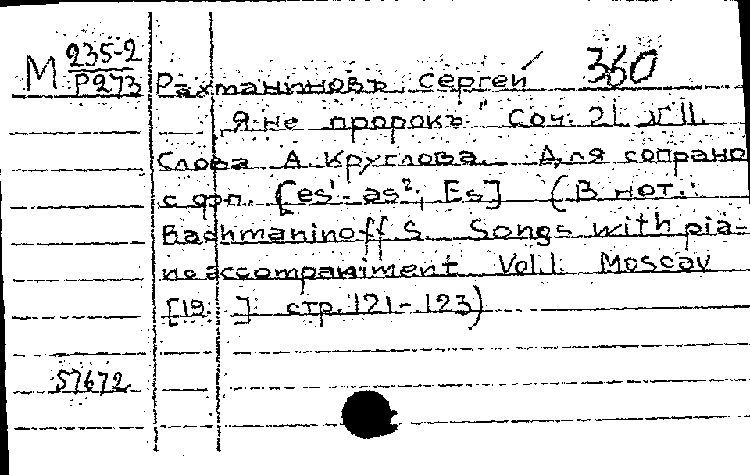 М 235-2
Р273
Рахманиновъ, Сергей 360
„Я не пророкъ" Соч. 21 №11.
Слова А. Круглова. Для сопрано
с фп. [es¹- as²; Es] (В нот.:
Rachmaninoff S. Songs with pia-
no accompaniment Vol.I. Moscav
[19. ]. стр. 121-123)
57672